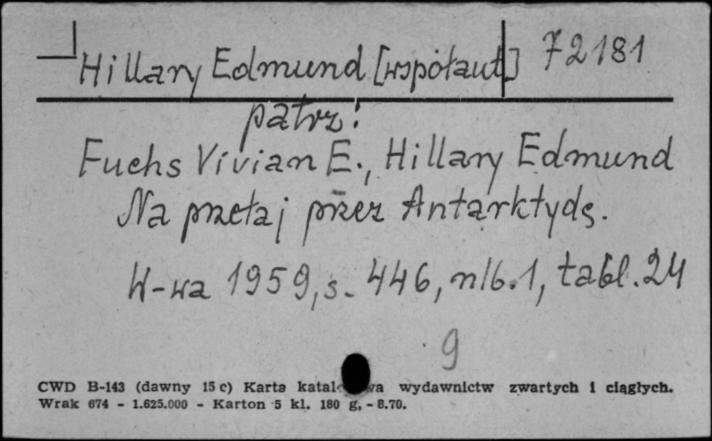 Hillary Edmund [współaut.] 72181
patrz:
Fuchs Vivian E., Hillary Edmund
Na przełaj przez Antarktydę.
W-wa 1959, s. 446, nlb. 1, tabl. 24
9
CWD B-143 (dawny 15 c) Karta katalogowa wydawnictw zwartych i ciągłych.
Wrak 674 - 1.625.000 - Karton 5 kl. 180 g, - 8.70.